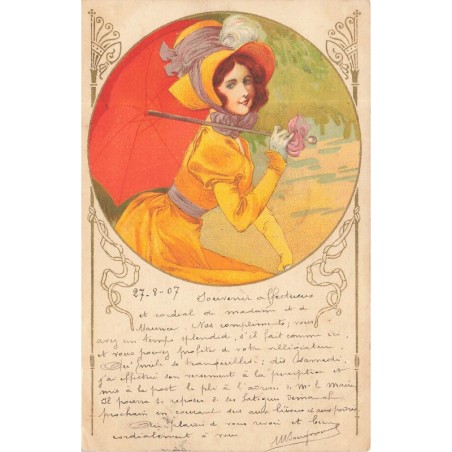 27-8-07 Souvenir affectueux
et cordial de madame et de
Maurice. Nos compliments, vous
avez un temps splendide, s'il fait comme ici
et vous pouvez profiter de votre villégiature
Qu'Emile se tranquillise; dès samedi,
j'ai effectué son versement à la perception et
mis à la poste le pli à l'adresse de Mr le Maire
Il pourra se reposer de ses fatigues dimanche
prochain en courant aux lièvres
Au plaisir de vous revoir et bien
cordialement à vous